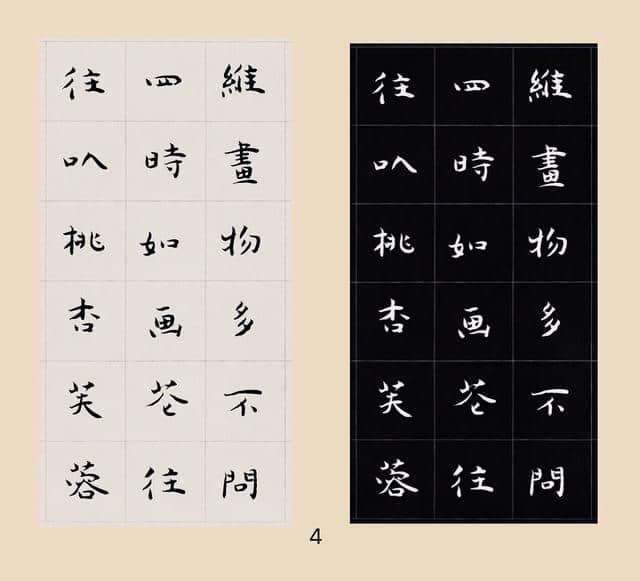 維畫物多不問
四時如画花往
往以桃杏芙蓉
維畫物多不問
四時如画花往
往以桃杏芙蓉
4